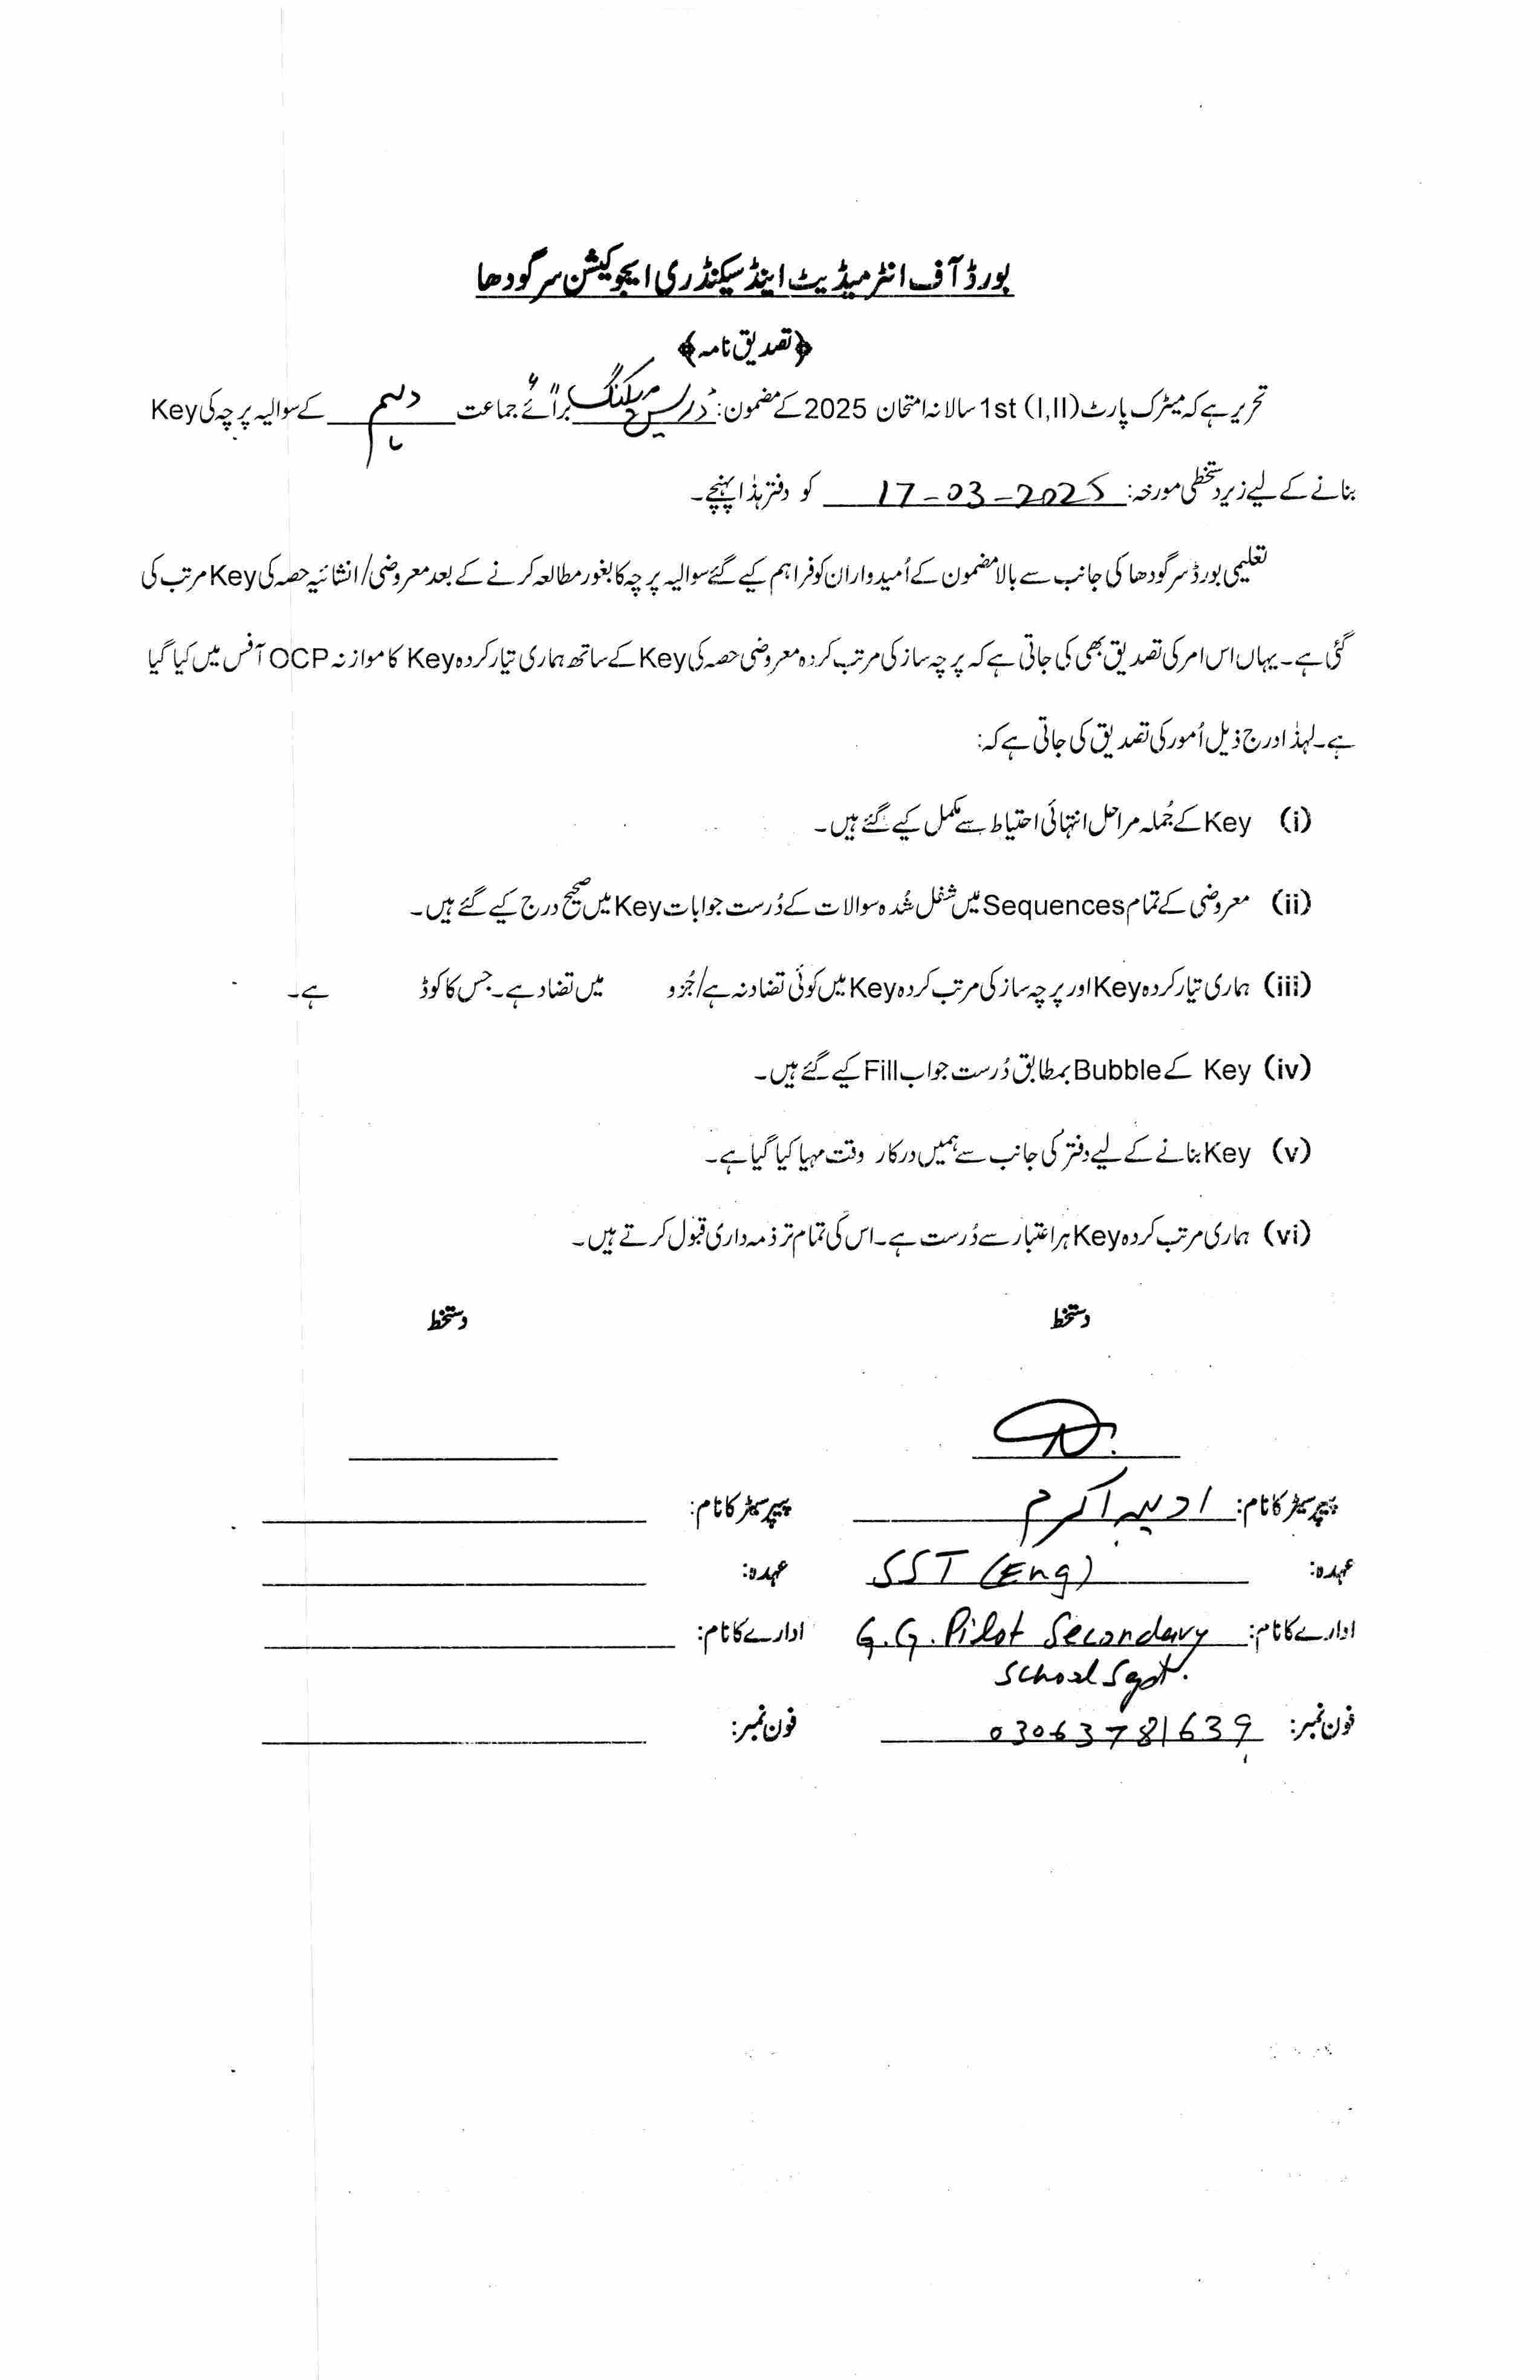 بورڈ آف انٹرمیڈیٹ اینڈ سیکنڈری ایجوکیشن سرگودھا
﴿تصدیق نامہ﴾
تحریر ہے کہ میٹرک پارٹ (I,II) 1st سالانہ امتحان 2025 کے مضمون: "ڈریس میکنگ" برائے جماعت دہم کے سوالیہ پرچہ کی Key
بنانے کے لیے زیر دستخطی مورخہ: 17-03-2025 کو دفتر ہذا پہنچے۔
تعلیمی بورڈ سرگودھا کی جانب سے بالا مضمون کے اُمیدواران کو فراہم کیے گئے سوالیہ پرچہ کا بغور مطالعہ کرنے کے بعد معروضی/انشائیہ حصہ کی Key مرتب کی
گئی ہے۔ یہاں اس امر کی تصدیق بھی کی جاتی ہے کہ پرچہ ساز کی مرتب کردہ معروضی حصہ کی Key کے ساتھ ہماری تیار کردہ Key کا موازنہ OCP آفس میں کیا گیا
ہے۔ لہذٰا درج ذیل اُمور کی تصدیق کی جاتی ہے کہ:
(i) Key کے جُملہ مراحل انتہائی احتیاط سے مکمل کیے گئے ہیں۔
(ii) معروضی کے تمام Sequences میں شفل شُدہ سوالات کے دُرست جوابات Key میں صحیح درج کیے گئے ہیں۔
(iii) ہماری تیار کردہ Key اور پرچہ ساز کی مرتب کردہ Key میں کوئی تضاد نہ ہے/جُزو میں تضاد ہے۔ جس کا کوڈ ہے۔
(iv) Key کے Bubble بمطابق دُرست جواب Fill کیے گئے ہیں۔
(v) Key بنانے کے لیے دفتر کی جانب سے ہمیں درکار وقت مہیا کیا گیا ہے۔
(vi) ہماری مرتب کردہ Key ہر اعتبار سے دُرست ہے۔ اس کی تمام تر ذمہ داری قبول کرتے ہیں۔
دستخط دستخط
پیپر سیٹر کا نام: ادیبہ اکرم پیپر سیٹر کا نام:
عہدہ: SST (Eng) عہدہ:
ادارے کا نام: G.G. Pilot Secondary ادارے کا نام:
School Sgd.
فون نمبر: 03063781639 فون نمبر: